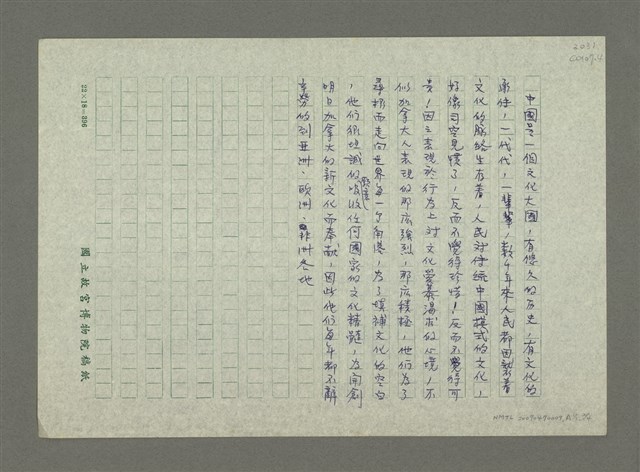 中國是一個文化大國，有悠久的历史，有文化的
承传，一代代，一輩輩，数千年來人民都因襲着
文化的脈络生存着，人民对传统中國模式的文化，
好像司空見慣了，反而不覺得珍惜！反而不覺得可
贵！因之表現於行為上对文化愛慕渴求的心境，不
似加拿大人表現的那麽強烈，那麽積極，他们为了
尋根而走向世界每一个角落，为了填補文化的空白
，他们很坦誠的吸收任何國家的文化精髓，为開創
明日加拿大的新文化而奉献，因此他们每年都不辭
辛勞的到亞洲、欧洲、非洲各地
22×18=396
國立故宮博物院稿紙
2031